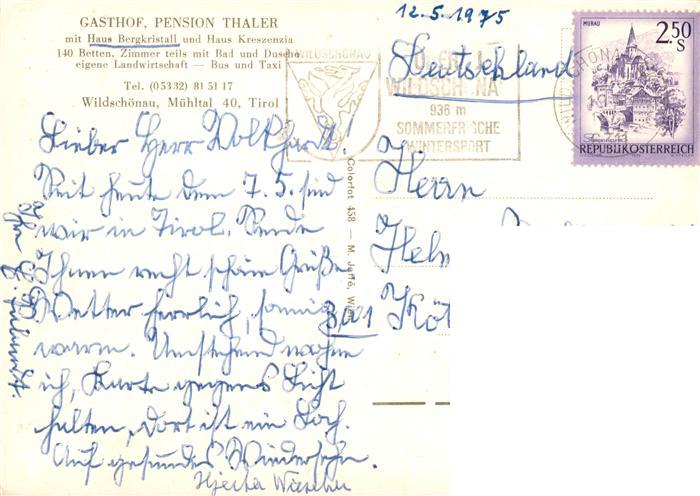 GASTHOF, PENSION THALER
mit Haus Bergkristall und Haus Kreszenzia
140 Betten, Zimmer teils mit Bad und Dusche
eigene Landwirtschaft — Bus und Taxi
Tel. (05332) 81 51 17
Wildschönau, Mühltal 40, Tirol
12.5.1975
Deutschland
WILDSCHÖNAU
WILDSCHÖNAU
936 m
SOMMERFRISCHE
WINTERSPORT
MURAU
2.50
S
REPUBLIK ÖSTERREICH
Lieber Herr Volkhardt!
Seit heute dem 7.5. sind
wir in Tirol. Sende
Ihnen recht schöne Grüße
Wetter herrlich, sonnig
warm. Umstehend wohne
ich, Karte gegens Licht
halten, dort ist ein Loch.
Auf gesundes Wiedersehn.
Ihre
Colorfot 438 — M. Jaffé, Wien
Herrn
Helm
Köt